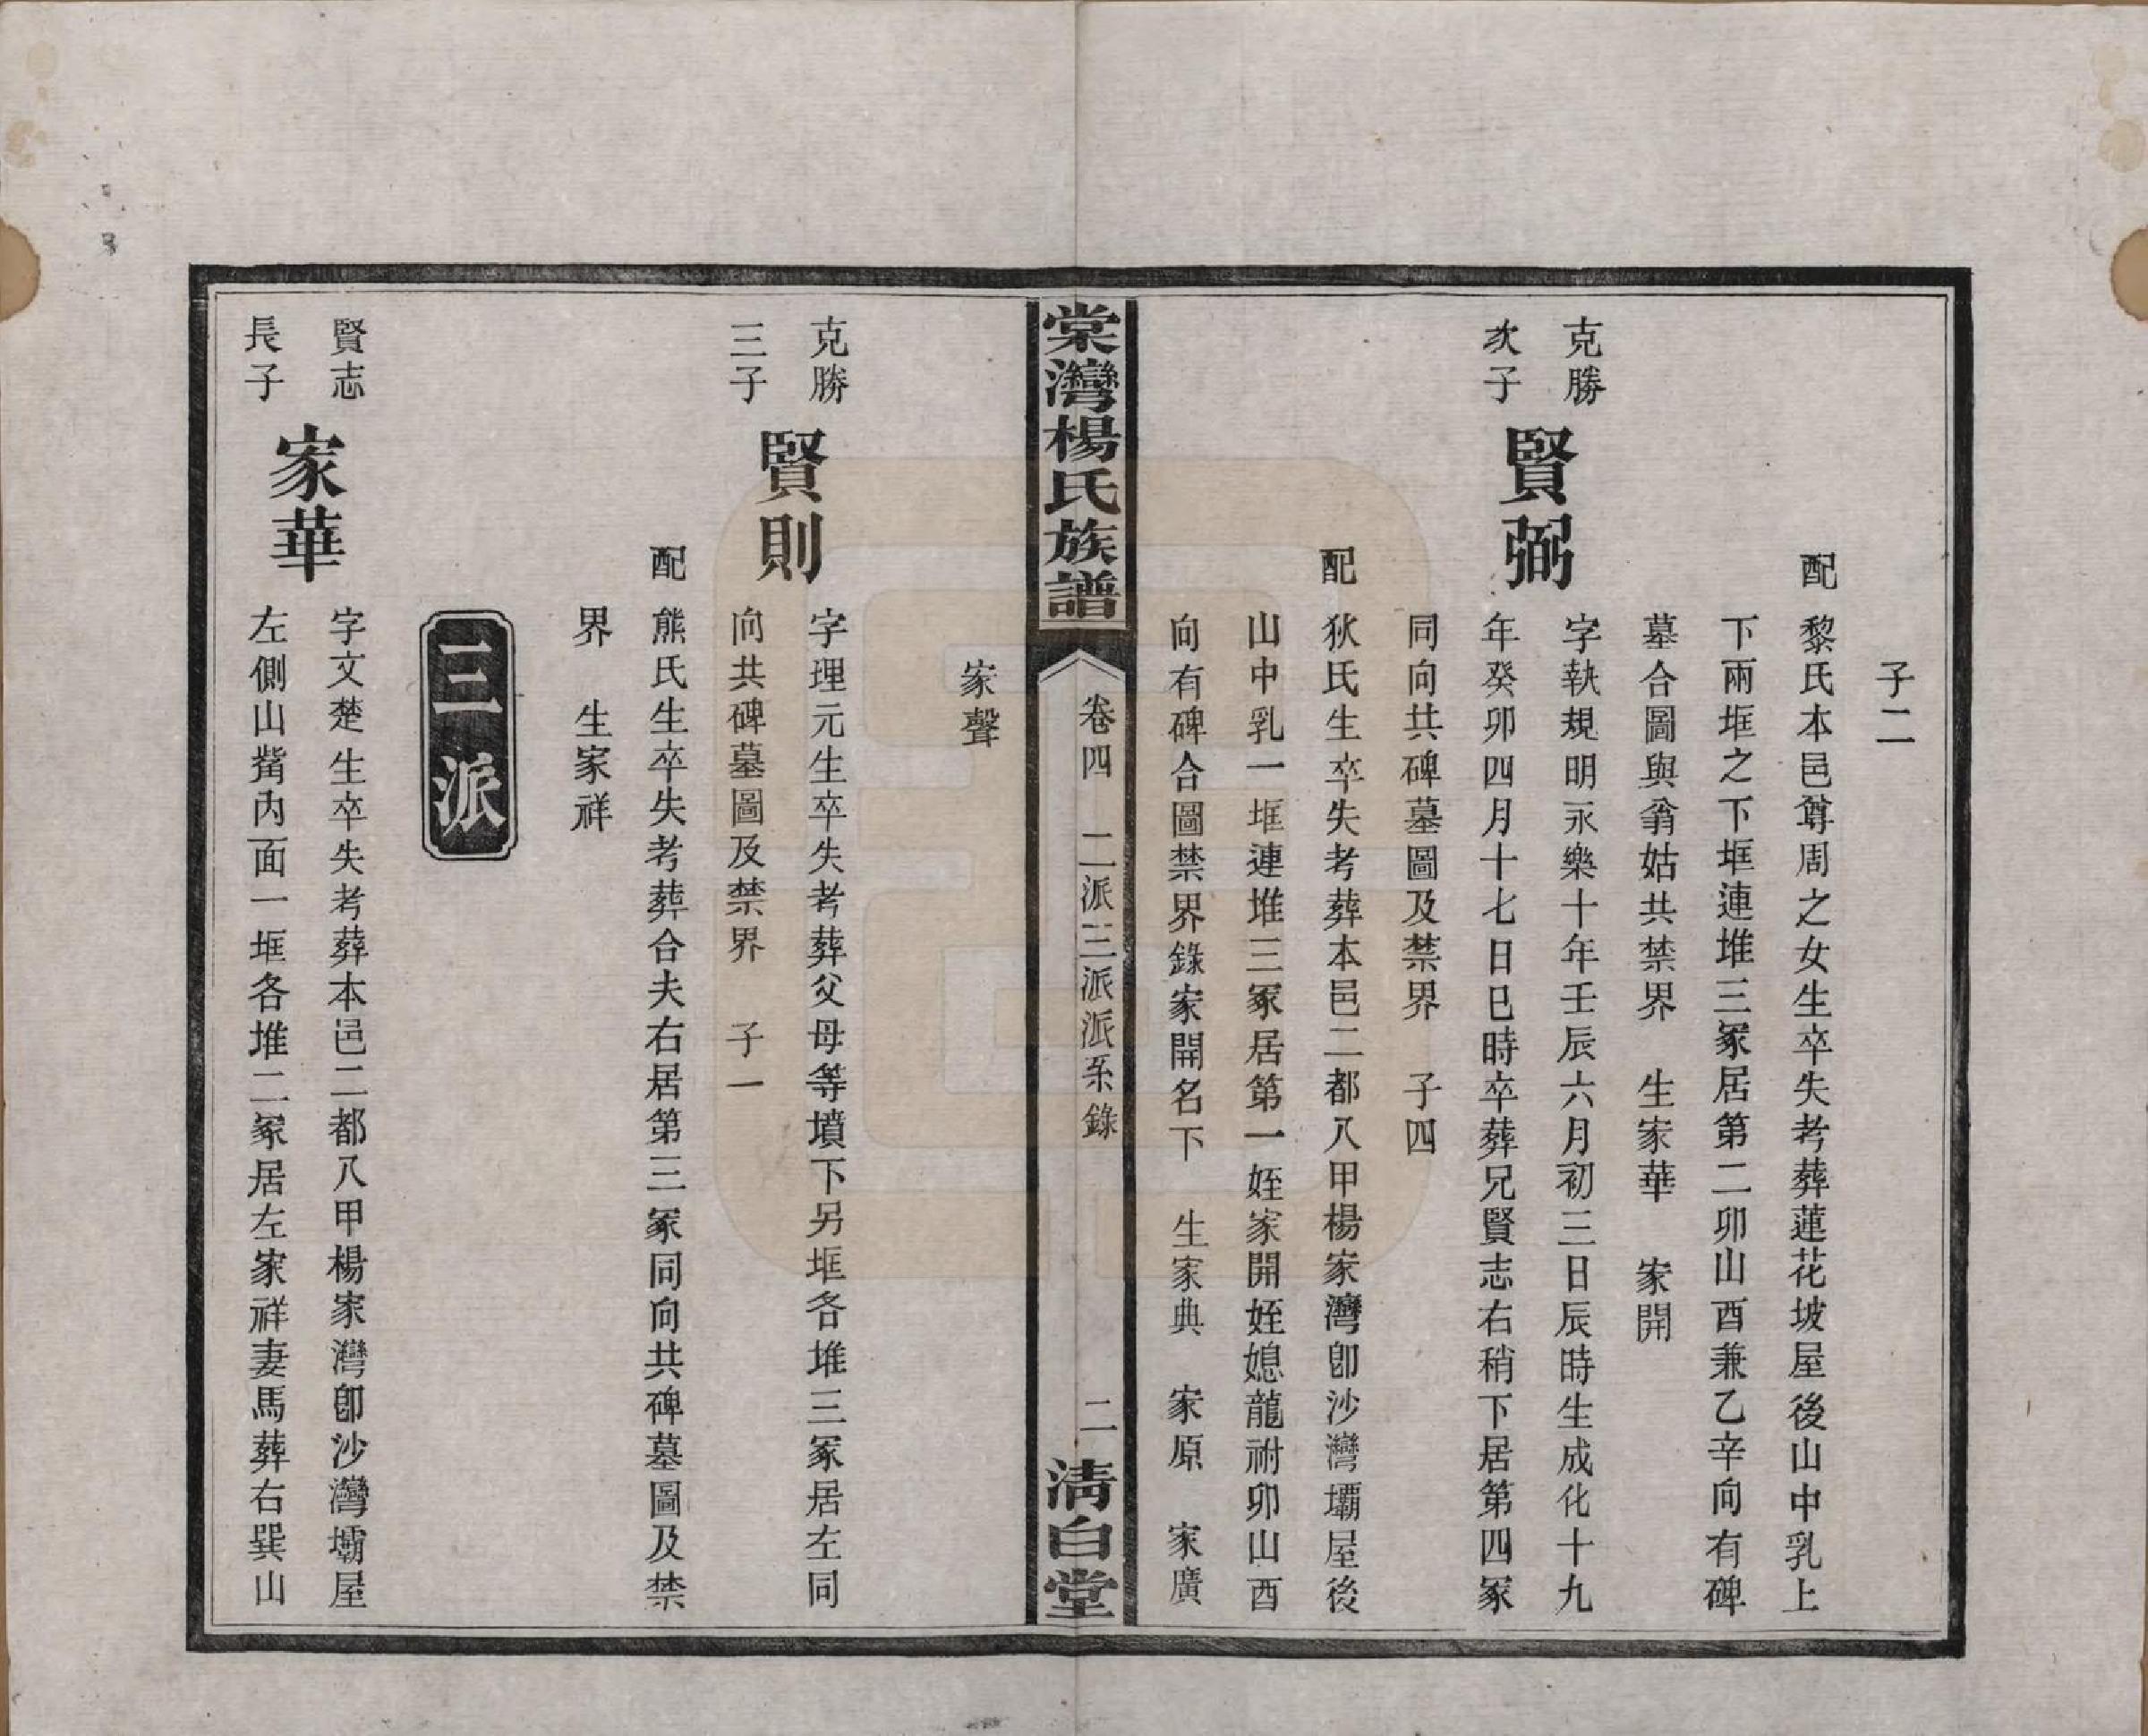 子二
配 黎氏本邑尊周之女生卒失考葬蓮花坡屋後山中乳上
下兩框之下框連堆三冢居第二卯山酉兼乙辛向有碑
墓合圖與翁姑共禁界 生家華 家開
克勝
次子
賢弼
字執規明永樂十年壬辰六月初三日辰時生成化十九
年癸卯四月十七日巳時卒葬兄賢志右稍下居第四冢
同向共碑墓圖及禁界 子四
配 狄氏生卒失考葬本邑二都八甲楊家灣卽沙灣壩屋後
山中乳一框連堆三冢居第一姪家開姪媳龍祔卯山酉
向有碑合圖禁界錄家開名下 生家典 家原 家廣
棠灣楊氏族譜 卷四 二派三派派系錄 二 淸白堂
家聲
克勝
三子
賢則
字理元生卒失考葬父母等墳下另框各堆三冢居左同
向共碑墓圖及禁界 子一
配 熊氏生卒失考葬合夫右居第三冢同向共碑墓圖及禁
界 生家祥
三派
賢志
長子
家華
字文楚生卒失考葬本邑二都八甲楊家灣卽沙灣壩屋
左側山觜內面一框各堆二冢居左家祥妻馬葬右巽山